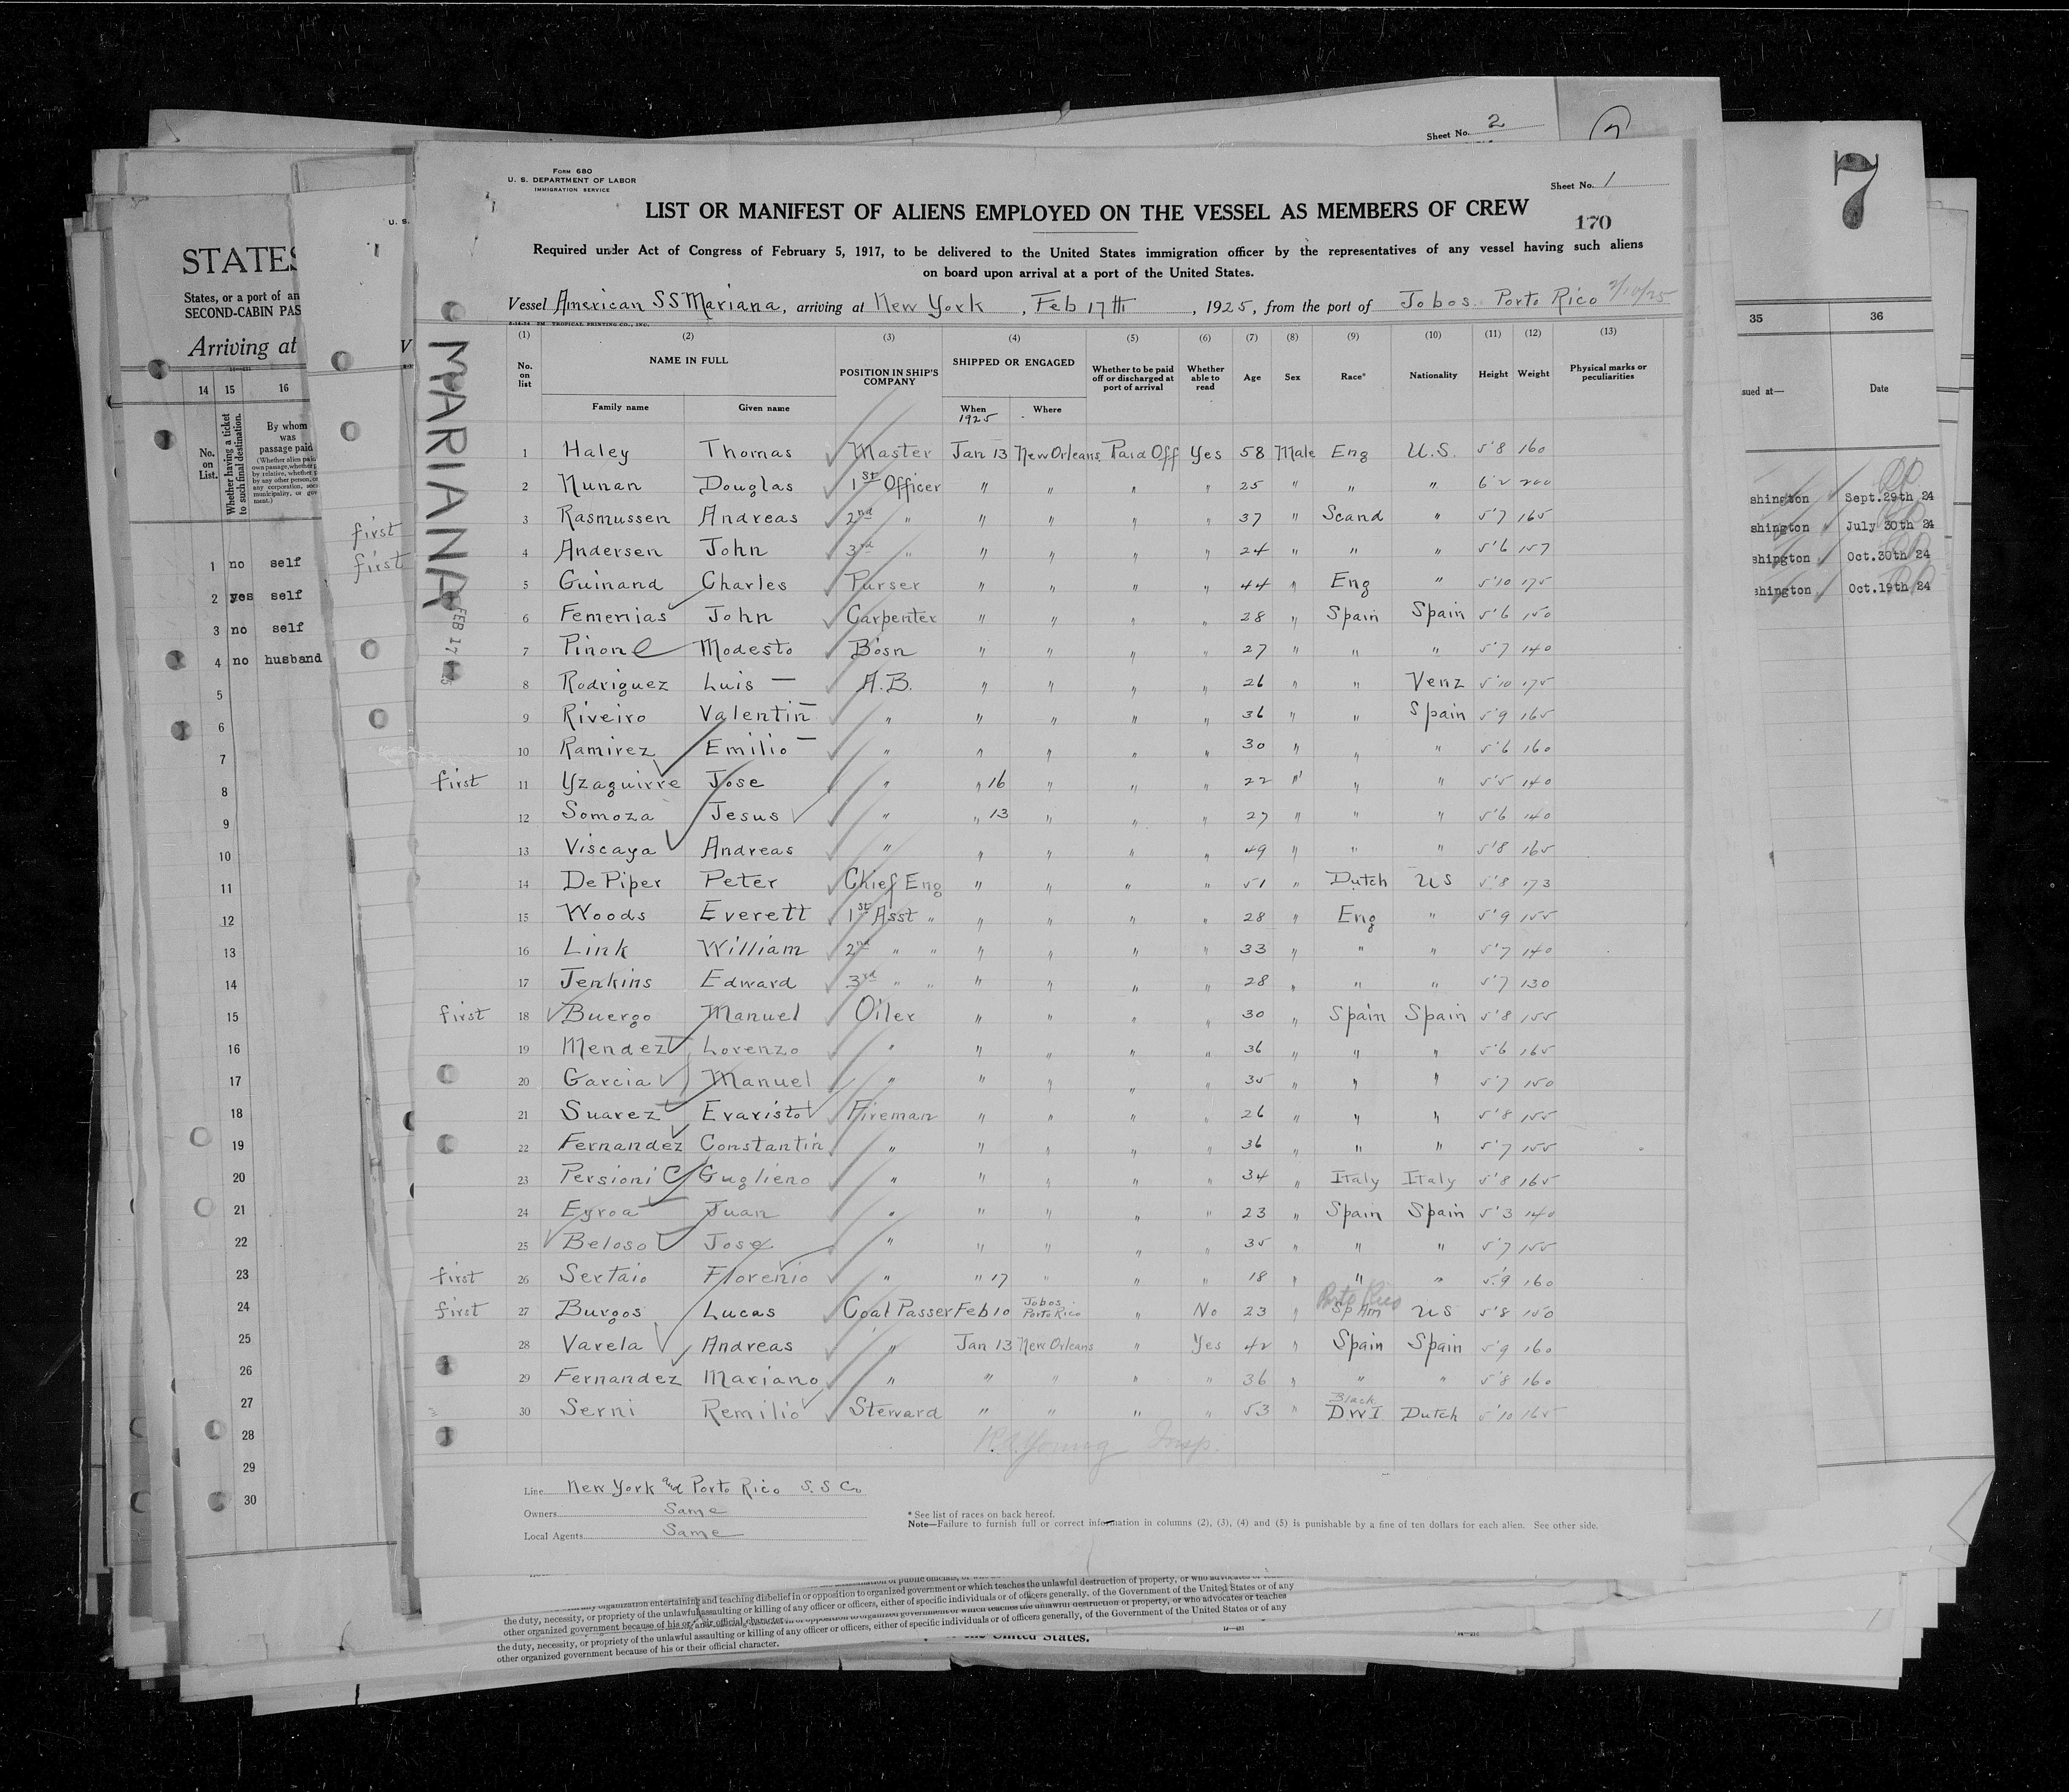 Sheet No. 2
7
Form 680
U. S. DEPARTMENT OF LABOR
IMMIGRATION SERVICE
Sheet No. 1
LIST OR MANIFEST OF ALIENS EMPLOYED ON THE VESSEL AS MEMBERS OF CREW
170
Required under Act of Congress of February 5, 1917, to be delivered to the United States immigration officer by the representatives of any vessel having such aliens
on board upon arrival at a port of the United States.
Vessel American SS Mariana, arriving at New York, Feb 17th, 1925, from the port of Jobos. Porto Rico 2/10/25
(1) (2) (3) (4) (5) (6) (7) (8) (9) (10) (11) (12) (13)
No. on list NAME IN FULL POSITION IN SHIP'S COMPANY SHIPPED OR ENGAGED Whether to be paid off or discharged at port of arrival Whether able to read Age Sex Race* Nationality Height Weight Physical marks or peculiarities
Family name Given name When 1925 Where
MARIANA
FEB 17
1 Haley Thomas Master Jan 13 New Orleans Paid Off Yes 58 Male Eng U.S. 5'8 160
2 Nunan Douglas 1st Officer " " " " 25 " " " 6'2 200
3 Rasmussen Andreas 2nd " " " " " 37 " Scand " 5'7 165
4 Andersen John 3rd " " " " " 24 " " " 5'6 157
5 Guinand Charles Purser " " " " 44 " Eng " 5'10 175
6 Femenias John Carpenter " " " " 28 " Spain Spain 5'6 150
7 Pinon Modesto Bosn " " " " 27 " " " 5'7 140
8 Rodriguez Luis A.B. " " " " 26 " " Venz 5'10 175
9 Riveiro Valentin " " " " " 36 " " Spain 5'9 165
10 Ramirez Emilio " " " " " 30 " " " 5'6 160
first 11 Yzaguirre Jose " " 16 " " " 22 " " " 5'5 140
12 Somoza Jesus " " 13 " " " 27 " " " 5'6 140
13 Viscaya Andreas " " " " " 49 " " " 5'8 165
14 De Piper Peter Chief Eng " " " " 51 " Dutch US 5'8 173
15 Woods Everett 1st Asst " " " " " 28 " Eng " 5'9 155
16 Link William 2nd " " " " " " 33 " " " 5'7 140
17 Jenkins Edward 3rd " " " " " " 28 " " " 5'7 130
first 18 Buergo Manuel Oiler " " " " 30 " Spain Spain 5'8 155
19 Mendez Lorenzo " " " " " 36 " " " 5'6 165
20 Garcia Manuel " " " " " 35 " " " 5'7 150
21 Suarez Evaristo Fireman " " " " 26 " " " 5'8 155
22 Fernandez Constantin " " " " " 36 " " " 5'7 155
23 Persioni Guglieno " " " " " 34 " Italy Italy 5'8 165
24 Eyroa Juan " " " " " 23 " Spain Spain 5'3 140
25 Beloso Jose " " " " " 35 " " " 5'7 155
first 26 Sertaio Florenio " " 17 " " " 18 " " " 5'9 160
first 27 Burgos Lucas Coal Passer Feb 10 Jobos Porto Rico " No 23 " Sp Am Porto Rico US 5'8 150
28 Varela Andreas " Jan 13 New Orleans " Yes 42 " Spain Spain 5'9 160
29 Fernandez Mariano " " " " " 36 " " " 5'8 160
30 Serni Remilio Steward " " " " 53 " Black DWI Dutch 5'10 165
Young Insp.
Line New York and Porto Rico S.S Co
Owners Same
Local Agents Same
* See list of races on back hereof.
Note—Failure to furnish full or correct information in columns (2), (3), (4) and (5) is punishable by a fine of ten dollars for each alien. See other side.
STATES
States, or a port of an
SECOND-CABIN PAS
Arriving at
14 15 16
No. on List. Whether having a ticket to such final destination. By whom was passage paid
first
first
1 no self
2 yes self
3 no self
4 no husband
5
6
7
8
9
10
11
12
13
14
15
16
17
18
19
20
21
22
23
24
25
26
27
28
29
30
35 36
sued at— Date
shington Sept.29th 24
shington July 30th 24
shington Oct.30th 24
shington Oct.19th 24
organization entertaining and teaching disbelief in or opposition to organized government or which teaches the unlawful destruction of property, or who advocates or teaches
the duty, necessity, or propriety of the unlawful assaulting or killing of any officer or officers, either of specific individuals or of officers generally, of the Government of the United States or of any
other organized government because of his or their official character.
the duty, necessity, or propriety of the unlawful assaulting or killing of any officer or officers, either of specific individuals or of officers generally, of the Government of the United States or of any
other organized government because of his or their official character.
United States.